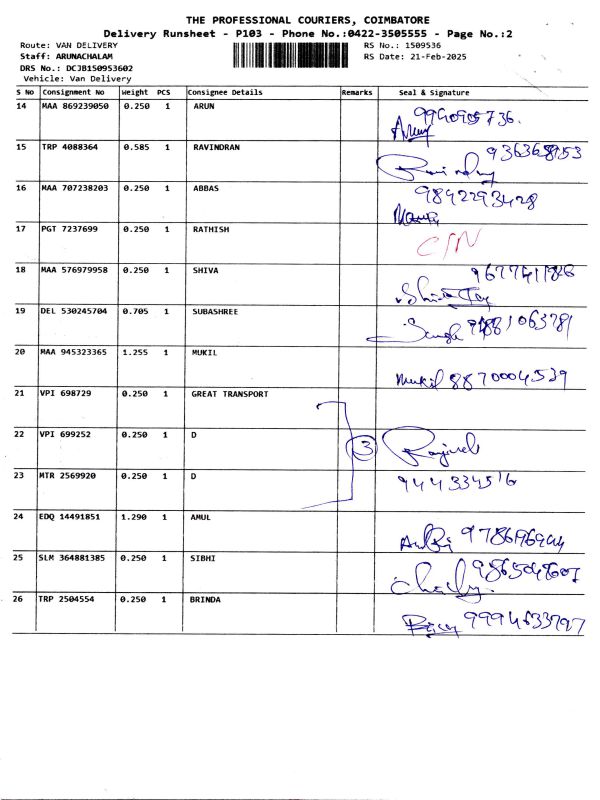 THE PROFESSIONAL COURIERS, COIMBATORE
Delivery Runsheet - P103 - Phone No.:0422-3505555 - Page No.:2
Route: VAN DELIVERY RS No.: 1509536
Staff: ARUNACHALAM RS Date: 21-Feb-2025
DRS No.: DCJB150953602
Vehicle: Van Delivery
S No Consignment No Weight PCS Consignee Details Remarks Seal & Signature
14 MAA 869239050 0.250 1 ARUN
15 TRP 4088364 0.585 1 RAVINDRAN
16 MAA 707238203 0.250 1 ABBAS 9842293428
17 PGT 7237699 0.250 1 RATHISH
18 MAA 576979958 0.250 1 SHIVA
19 DEL 530245704 0.705 1 SUBASHREE
20 MAA 945323365 1.255 1 MUKIL Mukil 8870004539
21 VPI 698729 0.250 1 GREAT TRANSPORT
22 VPI 699252 0.250 1 D 3
23 MTR 2569920 0.250 1 D
24 EDQ 14491851 1.290 1 AMUL
25 SLM 364881385 0.250 1 SIBHI
26 TRP 2504554 0.250 1 BRINDA 9994633797